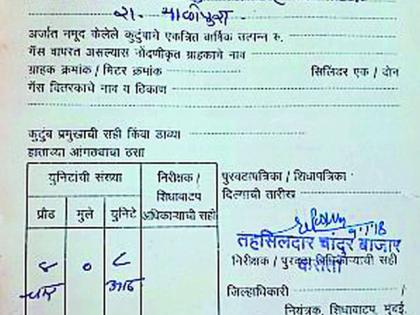 रा. माळीपुरा
अर्जात नमूद केलेले कुटुंबाचे एकत्रित वार्षिक उत्पन्न रु.
गॅस वापरत असल्यास नोंदणीकृत ग्राहकाचे नाव
ग्राहक क्रमांक / मिटर क्रमांक सिलिंडर एक / दोन
गॅस वितरकाचे नाव व ठिकाण
कुटुंब प्रमुखाची सही किंवा डाव्या
हाताच्या आंगठ्याचा ठसा
युनिटांची संख्या
निरीक्षक /
शिधावाटप
अधिकाऱ्याची सही
पुरवठापत्रिका / शिधापत्रिका
दिल्याची तारीख
प्रौढ मुले युनिटे
४ ० ८
चार आठ
तहसिलदार चांदुर बाजार
निरीक्षक / पुरवठा अधिकाऱ्याची सही
जिल्हाधिकारी
नियंत्रक, शिधावाटप, मुंबई.